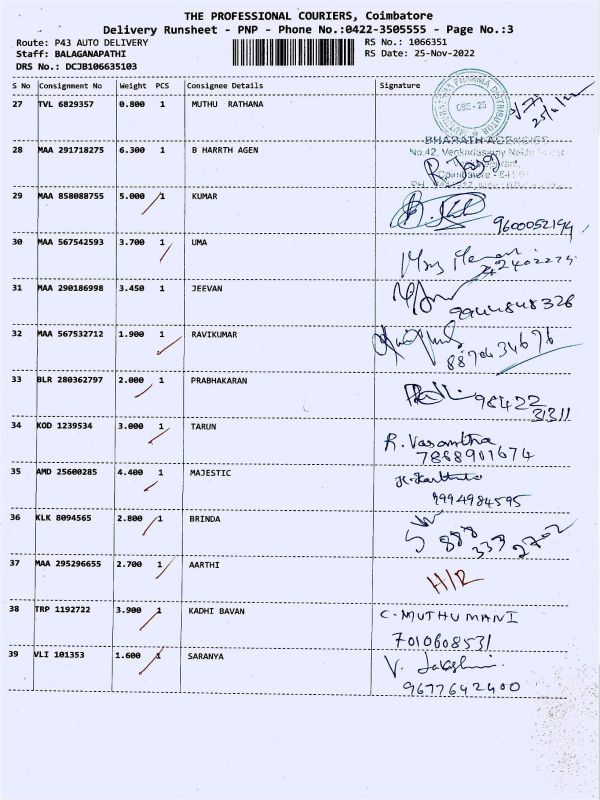 THE PROFESSIONAL COURIERS, Coimbatore
Delivery Runsheet - PNP - Phone No.:0422-3505555 - Page No.:3
Route: P43 AUTO DELIVERY RS No.: 1066351
Staff: BALAGANAPATHI RS Date: 25-Nov-2022
DRS No.: DCJB106635103
S No Consignment No Weight PCS Consignee Details Signature
27 TVL 6829357 0.800 1 MUTHU RATHANA
28 MAA 291718275 6.300 1 B HARRTH AGEN
BHARATH AGENCIES
No.42, Venkadasamy
Coimbatore - 641
29 MAA 858088755 5.000 1 KUMAR
9600052194
30 MAA 567542593 3.700 1 UMA
31 MAA 290186998 3.450 1 JEEVAN
9944848326
32 MAA 567532712 1.900 1 RAVIKUMAR
8870434676
33 BLR 280362797 2.000 1 PRABHAKARAN
98422
31311
34 KOD 1239534 3.000 1 TARUN
R. Vasantha
7868901674
35 AMD 25600285 4.400 1 MAJESTIC
9994984595
36 KLK 8094565 2.800 1 BRINDA
888
333
2702
37 MAA 295296655 2.700 1 AARTHI
H/R
38 TRP 1192722 3.900 1 KADHI BAVAN
C. MUTHUMANI
7010608531
39 VLI 101353 1.600 1 SARANYA
V.
9677642400